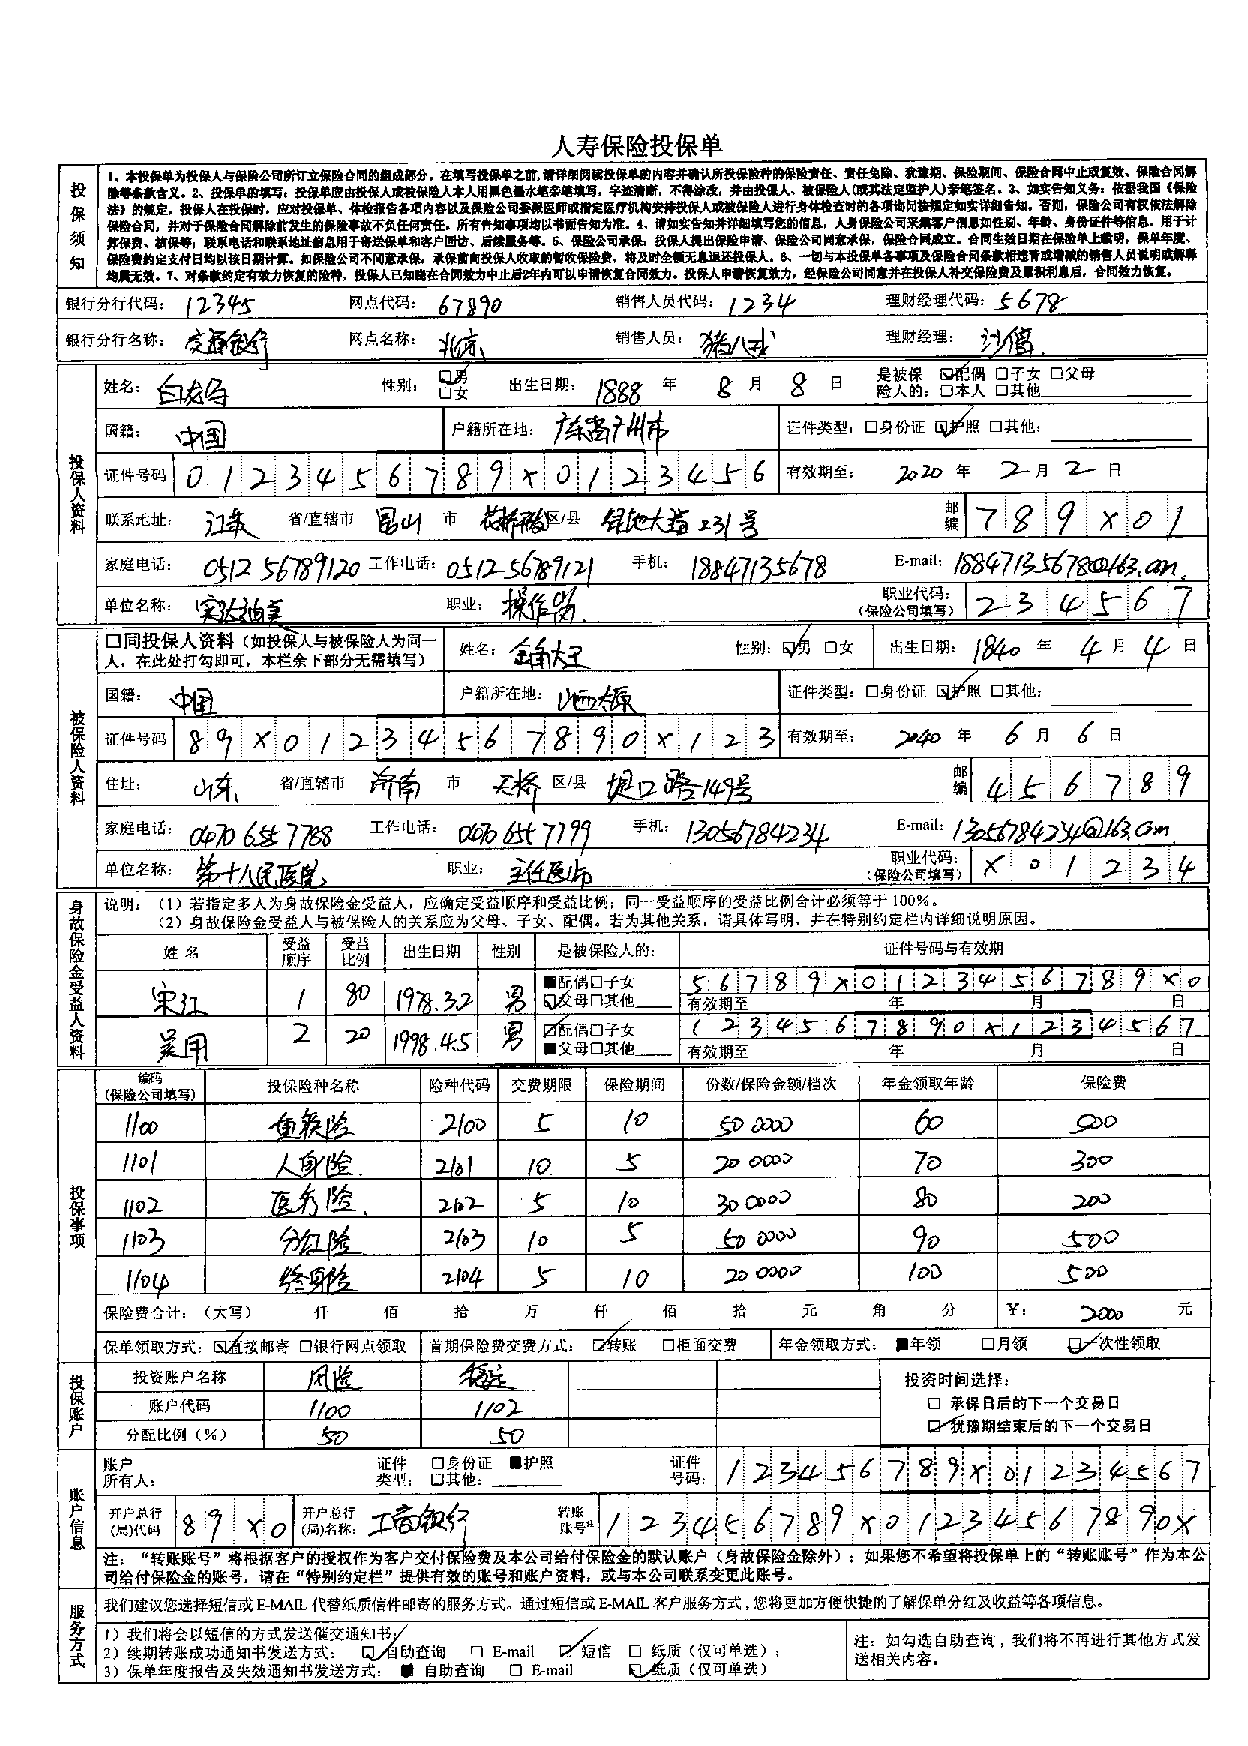 人寿保险投保单
投保须知
1、本投保单为投保人与保险公司所订立保险合同的组成部分，在填写投保单之前，请详细阅读投保单的内容并确认所投保险种的保险责任、责任免除、犹豫期、保险期间、保险合同中止或复效、保险合同解
除等条款含义。2、投保单的填写：投保单应由投保人或被保险人本人用黑色墨水笔亲笔填写，字迹清晰，不得涂改，并由投保人、被保险人（或其法定监护人）亲笔签名。3、如实告知义务：依据我国《保险
法》的规定，投保人在投保时，应对投保单、体检报告各项内容以及保险公司委派医师或指定医疗机构安排投保人或被保险人进行身体检查时的各项询问按规定如实详细告知。否则，保险公司有权依法解除
保险合同，并对于保险合同解除前发生的保险事故不负任何责任。所有告知事项均以书面告知为准。4、请如实告知并详细填写您的信息，人身保险公司采集客户信息如性别、年龄、身份证件等信息，用于计
算保费、核保等；联系电话和联系地址信息用于寄送保单和客户回访、后续服务等。5、保险公司承保：投保人提出保险申请、保险公司同意承保，保险合同成立。合同生效日期在保险单上载明，保单年度、
保险费约定支付日均以该日期计算。如保险公司不同意承保，承保前向投保人收取的暂收保险费，将及时全额无息退还投保人。6、一切与本投保单各事项及保险合同条款相违背或增减的销售人员说明或解释
均属无效。7、对条款约定有效力恢复的险种，投保人已知晓在合同效力中止后2年内可以申请恢复合同效力。投保人申请恢复效力，经保险公司同意并在投保人补交保险费及累积利息后，合同效力恢复。
银行分行代码：12345 网点代码：67890 销售人员代码：1234 理财经理代码：5678
银行分行名称：交通银行 网点名称：北京 销售人员：猪八戒 理财经理：沙僧
投保人资料
姓名：白龙马 性别：□男 □女 出生日期：1888 年 8 月 8 日 是被保险人的：□配偶 □子女 □父母 □本人 □其他
国籍：中国 户籍所在地：广东省广州市 证件类型：□身份证 □护照 □其他：
证件号码 0123456789X0123456 有效期至：2020 年 2 月 2 日
联系地址：江苏 省/直辖市 昆山 市 花桥镇 区/县 绿地大道231号 邮编 789X01
家庭电话：0512 56789120 工作电话：0512 56789121 手机：18847135678 E-mail：18847135678@163.com.
单位名称：实达迪美 职业：操作岗 职业代码：（保险公司填写） 234567
被保险人资料
□同投保人资料（如投保人与被保险人为同一人，在此处打勾即可，本栏余下部分无需填写） 姓名：金角大王 性别：□男 □女 出生日期：1840 年 4 月 4 日
国籍：中国 户籍所在地：山西太原 证件类型：□身份证 □护照 □其他：
证件号码 89X01234567890X123 有效期至：2040 年 6 月 6 日
住址：山东 省/直辖市 济南 市 天桥 区/县 堤口路149号 邮编 456789
家庭电话：0470 6557788 工作电话：0470 6557799 手机：13056784234 E-mail：13056784234@163.com
单位名称：第十人民医院 职业：主任医师 职业代码：（保险公司填写） X01234
身故保险金受益人资料
说明：（1）若指定多人为身故保险金受益人，应确定受益顺序和受益比例；同一受益顺序的受益比例合计必须等于100%。
（2）身故保险金受益人与被保险人的关系应为父母、子女、配偶。若为其他关系，请具体写明，并在特别约定栏内详细说明原因。
姓 名 受益顺序 受益比例 出生日期 性别 是被保险人的： 证件号码与有效期
宋江 1 80 1978.3.2 男 ■配偶□子女 □父母□其他 56789X0123456789X0
有效期至 年 月 日
吴用 2 20 1998.4.5 男 □配偶□子女 ■父母□其他 1234567890X1234567
有效期至 年 月 日
投保事项
编码（保险公司填写） 投保险种名称 险种代码 交费期限 保险期间 份数/保险金额/档次 年金领取年龄 保险费
1100 重疾险 2100 5 10 500000 60 500
1101 人身险 2101 10 5 200000 70 300
1102 医疗险 2102 5 10 300000 80 200
1103 分红险 2103 10 5 500000 90 500
1104 终身险 2104 5 10 200000 100 500
保险费合计：（大写） 仟 佰 拾 万 仟 佰 拾 元 角 分 ¥：2000 元
保单领取方式：□直接邮寄 □银行网点领取 首期保险费交费方式：□转账 □柜面交费 年金领取方式：■年领 □月领 □一次性领取
投保账户
投资账户名称 风险 稳定 投资时间选择：
账户代码 1100 1102 □ 承保日后的下一个交易日
分配比例（%） 50 50 □ 犹豫期结束后的下一个交易日
账户信息
账户所有人： 证件类型：□身份证 ■护照 □其他： 证件号码：123456789X01234567
开户总行(局)代码 89X0 开户总行(局)名称：工商银行 转账账号 123456789X01234567890X
注：“转账账号”将根据客户的授权作为客户交付保险费及本公司给付保险金的默认账户（身故保险金除外）；如果您不希望将投保单上的“转账账号”作为本公
司给付保险金的账号，请在“特别约定栏”提供有效的账号和账户资料，或与本公司联系变更此账号。
服务方式
我们建议您选择短信或E-MAIL代替纸质信件邮寄的服务方式。通过短信或E-MAIL客户服务方式，您将更加方便快捷的了解保单分红及收益等各项信息。
1）我们将会以短信的方式发送催交通知书；
2）续期转账成功通知书发送方式：□ 自助查询 □ E-mail □ 短信 □ 纸质（仅可单选）；
3）保单年度报告及失效通知书发送方式：■ 自助查询 □ E-mail □ 纸质（仅可单选）
注：如勾选自助查询，我们将不再进行其他方式发
送相关内容。